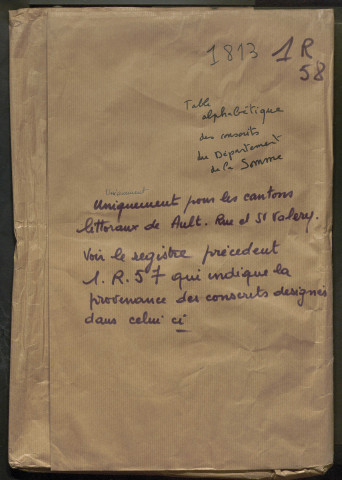 1813 1 R
58
Table
alphabétique
des conscrits
du Département
de la Somme
Uniquement
Uniquement pour les cantons
littoraux de Ault. Rue et St Valery.
Voir le registre précedent
1. R. 57 qui indique la
provenance des conscrits designés
dans celui ci